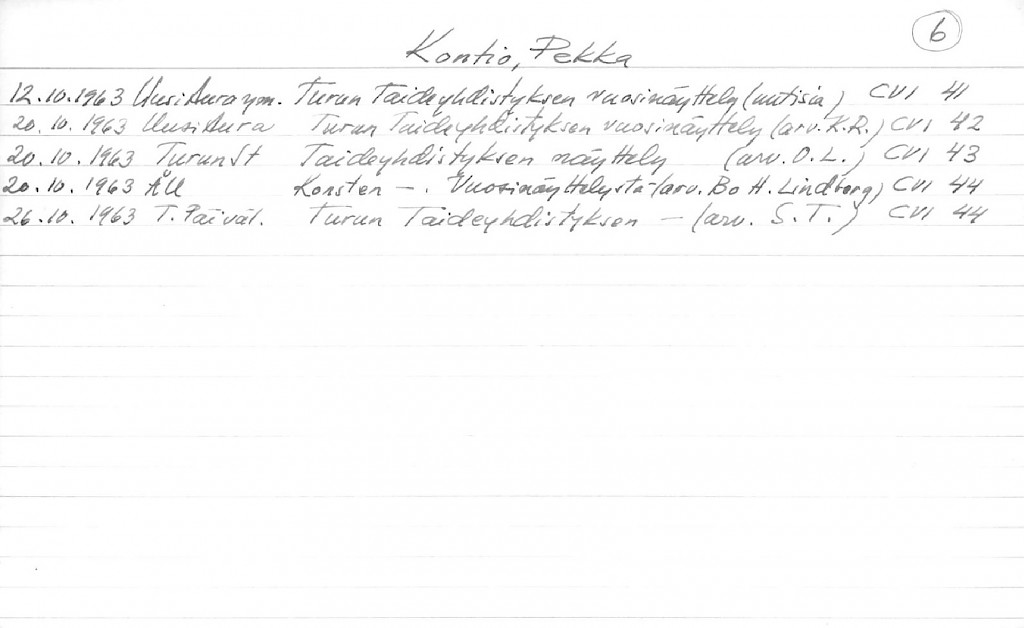 6
Kontio, Pekka
12.10.1963 Uusi Aura ym. Turun Taideyhdistyksen vuosinäyttely (uutisia) CVI 41
20.10.1963 Uusi Aura Turun Taideyhdistyksen vuosinäyttely (arv. K.R.) CVI 42
20.10.1963 Turun St Taideyhdistyksen näyttely (arv. O.L.) CVI 43
20.10.1963 ÅU Konsten – . Vuosinäyttelystä (arv. Bo H. Lindberg) CVI 44
26.10.1963 T. Päiväl. Turun Taideyhdistyksen – (arv. S.T.) CVI 44